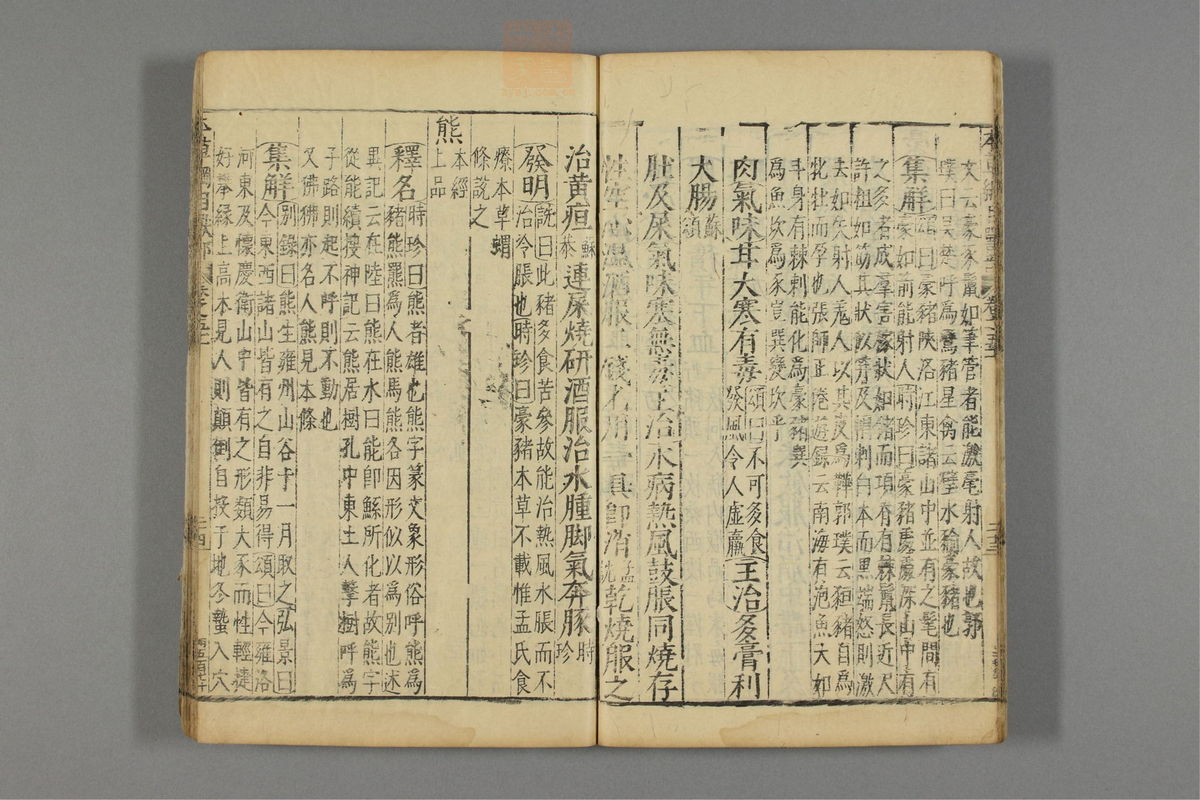 文云豪豕鬣如筆管者能激毫射人故也郭
璞曰吴楚呼為鸞豬星禽云壁水㺄豪豬也
集解頌曰豪豬陜洛江東諸山中並有之髦間有
豪如箭能射人時珍曰豪豬處處深山中有
之多者成羣害稼狀如豬而項有棘鬣長近尺
許粗如筯其狀似笄及帽刺白本而黑端怒則激
去如矢射人羗人以其皮為鞾郭璞云狟豬自為
牝牡而孕也張師正倦遊録云南海有泡魚大如
斗身有棘刺能化為豪豬巽
為魚坎為豕豈巽變坎乎
肉氣味甘大寒有毒頌曰不可多食
發風令人虛羸主治多膏利
大腸蘇頌
肚及屎氣味寒無毒主治水病熱風鼓脹同燒存
性空心溫酒服二錢匕用一具即消孟詵乾燒服之
治黃疸蘇恭連屎燒研酒服治水腫脚氣奔豚時珍
發明詵曰此豬多食苦參故能治熱風水脹而不
治冷脹也時珍曰豪豬本草不載惟孟氏食
療本草蝟
條說之
熊本經
上品
釋名時珍曰熊者雄也熊字篆文象形俗呼熊為
豬熊羆為人熊馬熊各因形似以為別也述
異記云在陸曰熊在水曰能卽鯀所化者故熊字
從能續搜神記云熊居樹孔中東土人擊樹呼為
子路則起不呼則不動也
又狒狒亦名人熊見本條
集解別錄曰熊生雍州山谷十一月取之弘景曰
今東西諸山皆有之自非易得頌曰今雍洛
河東及懷慶衛山中皆有之形類大豕而性輕捷
好攀緣上高木見人則顛倒自投于地冬蟄入穴